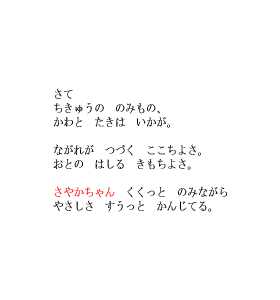 さて
ちきゅうの　のみもの、
かわと　たきは　いかが。
ながれが　つづく　ここちよさ。
おとの　はしる　きもちよさ。
さやかちゃん　くくっと　のみながら
やさしさ　すうっと　かんじてる。